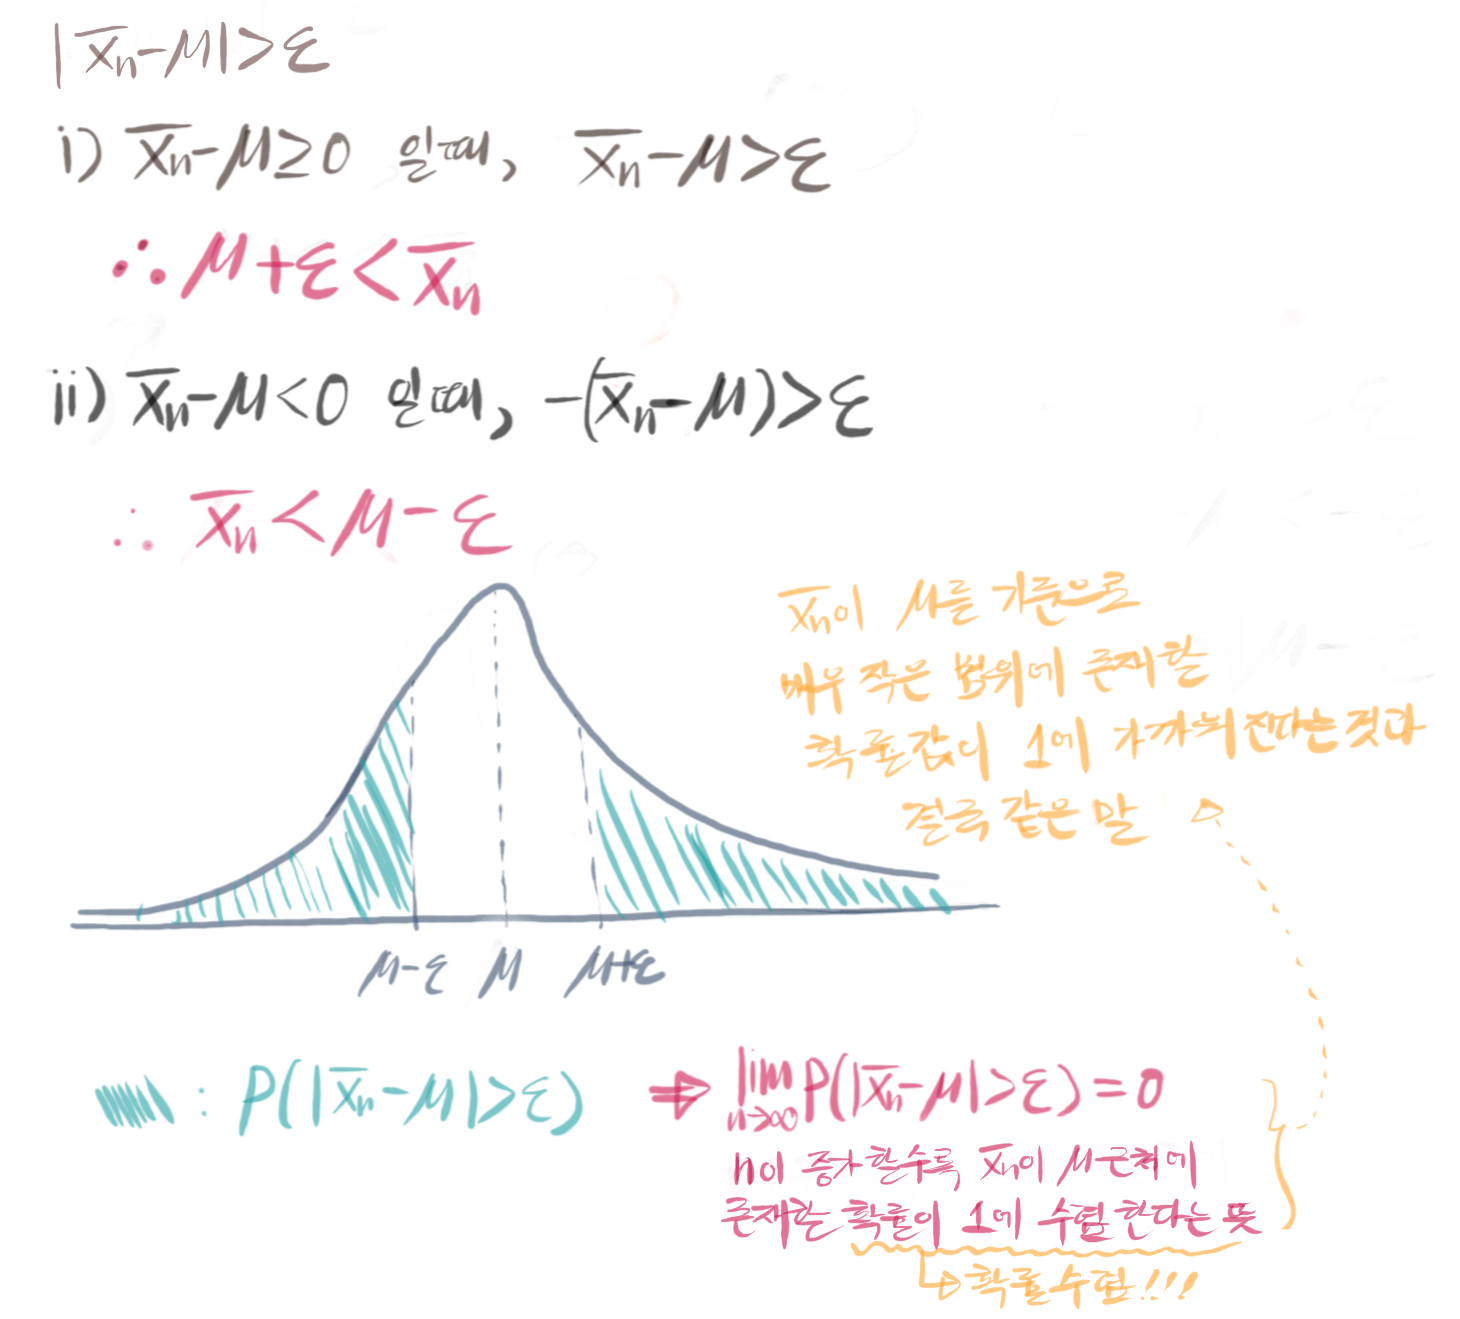 |x̄ₙ-μ|>ε
i) x̄ₙ-μ≥0 일때, x̄ₙ-μ>ε
∴ μ+ε<x̄ₙ
ii) x̄ₙ-μ<0 일때, -(x̄ₙ-μ)>ε
∴ x̄ₙ<μ-ε
x̄ₙ이 μ를 기준으로
매우 작은 범위에 존재할
확률값이 1에 가까워진다는 것과
결국 같은 말
μ-ε μ μ+ε
: P(|x̄ₙ-μ|>ε) ⇒ lim n→∞ P(|x̄ₙ-μ|>ε)=0
n이 증가할수록 x̄ₙ이 μ근처에
존재할 확률이 1에 수렴한다는 뜻
↳ 확률수렴!!!